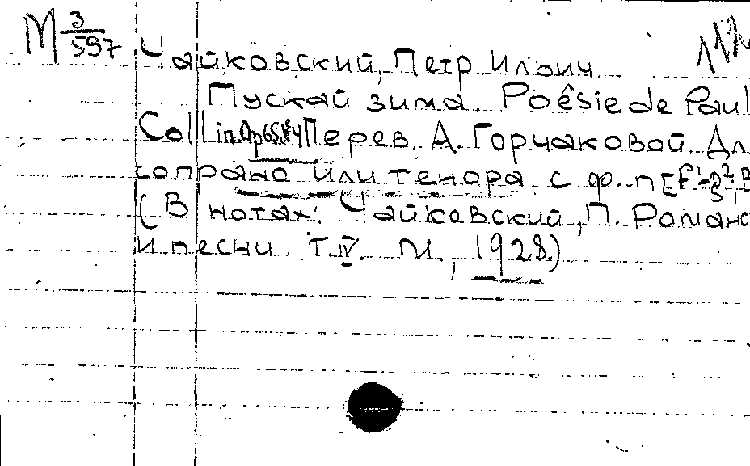 М 3/597 Чайковский, Петр Ильич
Пускай зима. Poêsie de Paul
Collin. Op 65 №4 Перев. А. Горчаковой. Дл
сопрано или тенора с ф.-п [f¹-
(В нотах: Чайковский, П. Романс
и песни. Т. IV. М, 1928)